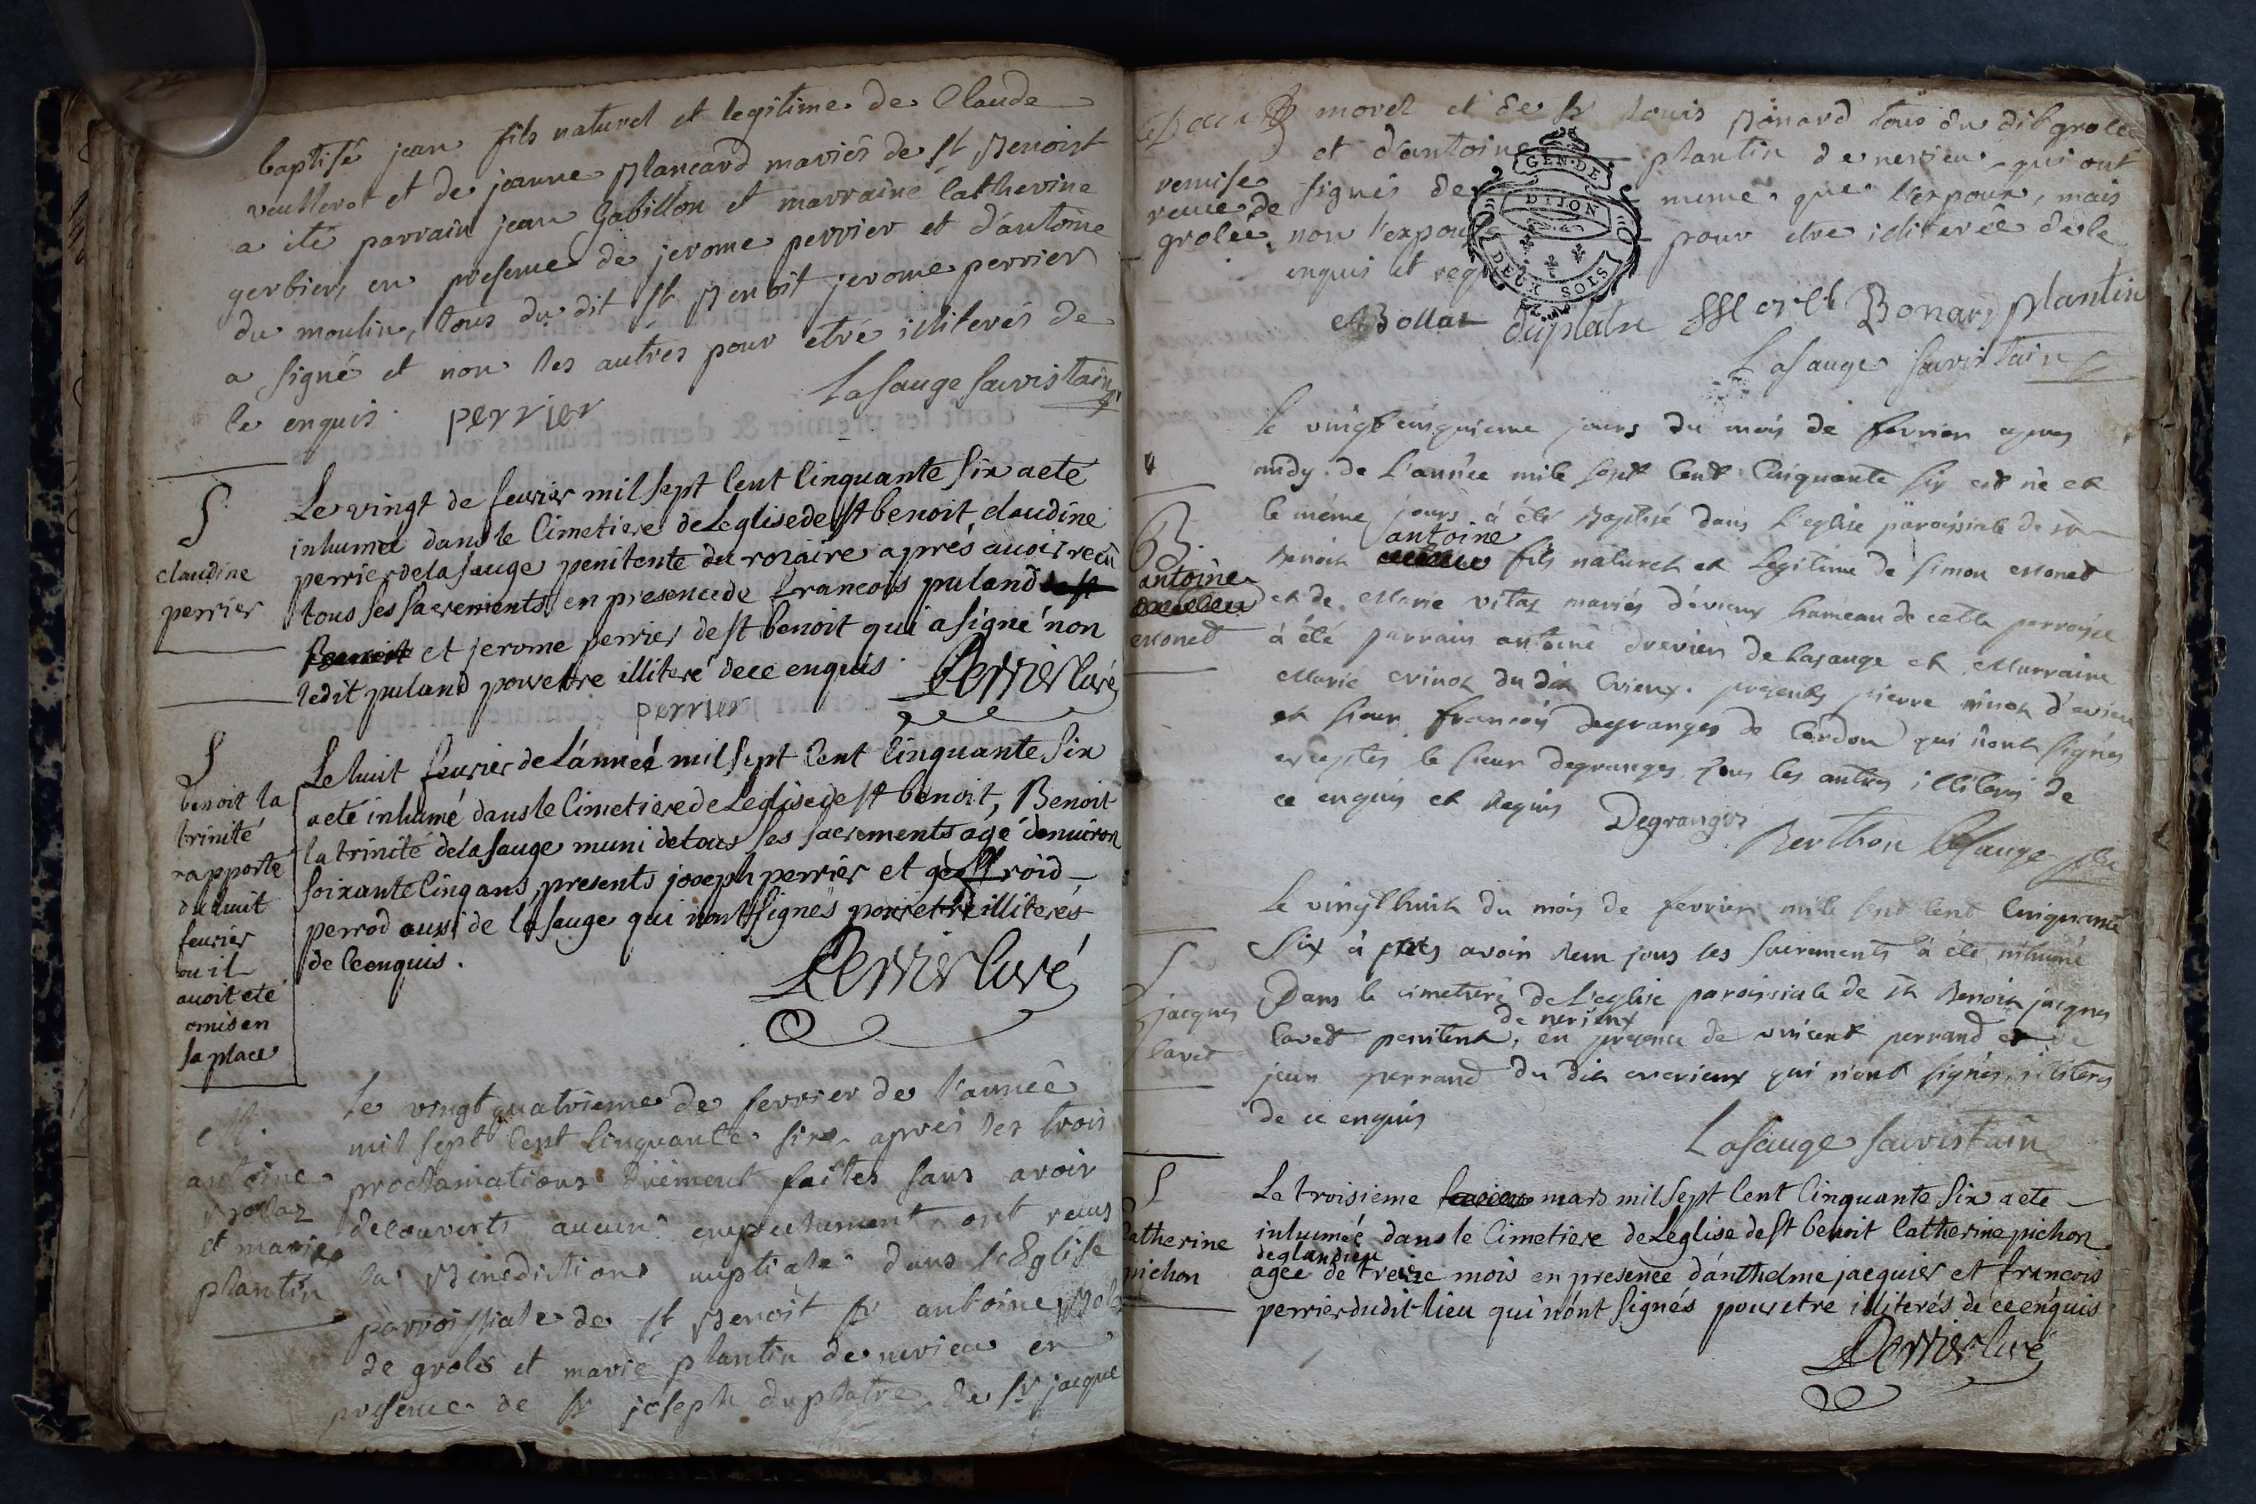 baptisé jean fils naturel et legitime de Claude
veulleret et de jeanne Blancard mariés de st Benoist
a été parrain jean Gabillon et marraine Catherine
gerbier, en presence de jerome perrier et d'antoine
du moulin, tous du dit st Benoit jerome perrier
a signé et non les autres pour etre illiterés de
ce enquis. perrier
Lasauge sacristain
S
claudine
perrier
Le vingt de feurier mil sept Cent Cinquante Six a eté
inhumée dans le Cimetiere de Leglise de st benoit claudine
perrier de la sauge penitente du rozaire aprés auoir recu
tous ses sacrements, en presence de francois puland
et jerome perrier de st benoit qui a signé non
ledit puland pour etre illiteré de ce enquis.
perrier
Perrier Curé
S
benoit la
trinité
rapporté
du huit
feurier
ou il
auoit eté
omis en
sa place
Le huit feurier de L'année mil sept Cent Cinquante Six
a eté inhumé dans le Cimetiere de Leglise de st benoit, Benoit
la trinité de la sauge muni de tous ses sacrements agé d'enuiron
soixante Cinq ans, presents joseph perrier et geoffroid
perrod aussi de la sauge qui n'ont signés pour etre illiterés
de Ce enquis.
Perrier Curé
M.
antoine
Bollaz
et marie
plantin
Le vingt quatrieme de fevrier de l'année
mil sept Cent Cinquante six, aprés les trois
proclamations duement faites sans avoir
decouverts aucun empechement, ont recus
la Benediction nuptiale dans l'Eglise
parroissiale de st Benoit sr antoine Bolaz
de grolée et marie plantin de nerieu en
presence de sr joseph duplatre, de sr jacque
morel et de sr Louis Bonard tous du dit grolée
et d'antoine plantin de nerieu qui ont
remise
recue de
grolée
signés de meme que l'expoux, mais
non l'expouse pour etre illiterée de le
enquis et requis
GEN. DE
DIJON
DEUX SOLS
A Bollaz duplatre Morel Bonard plantin
Lasauge sacristain
B.
antoine
Monet
Le vingt cinquieme jours du mois de fevrier apres
midy de L'année mile sept Cent Cinquante six est né et
le même jours à été Baptisé dans L'eglise paroissiale de st
antoine
Benoit fils naturel et Legitime de simon Monet
et de Marie vitaz mariés d'evieux hameau de cette parroisse
à été parrain antoine drevien de lasauge et Marraine
Marie evinot du dit Evieux. presents pierre d'evieu
et sieur francois degranges de Cordon qui n'ont signés
exceptés le sieur degranges, tous les autres illiterés de
ce enquis et Requis Degranges
Berthon Lasauge
S
jacques
Cavet
Le vingt huit du mois de fevrier mile sept Cent Cinquante
Six à prés avoir recu tous ses sacrements à été inhumé
Dans le cimetiere de L'eglise paroissiale de st Benoit jacques
de nerieux
Cavet penitent, en presence de vincent perrand et de
jean perrand du dit evieux qui n'ont signés illiterés
de ce enquis
Lasauge sacristain
S
Catherine
pichon
Le troisieme mars mil sept Cent Cinquante Six a eté
inhumée dans le Cimetiere de Leglise de st benoit Catherine pichon
deglandieu
agée de treize mois en presence d'anthelme jacquier et francois
perrier dudit lieu qui n'ont signés pour etré illiterés de ce enquis
Perrier Curé